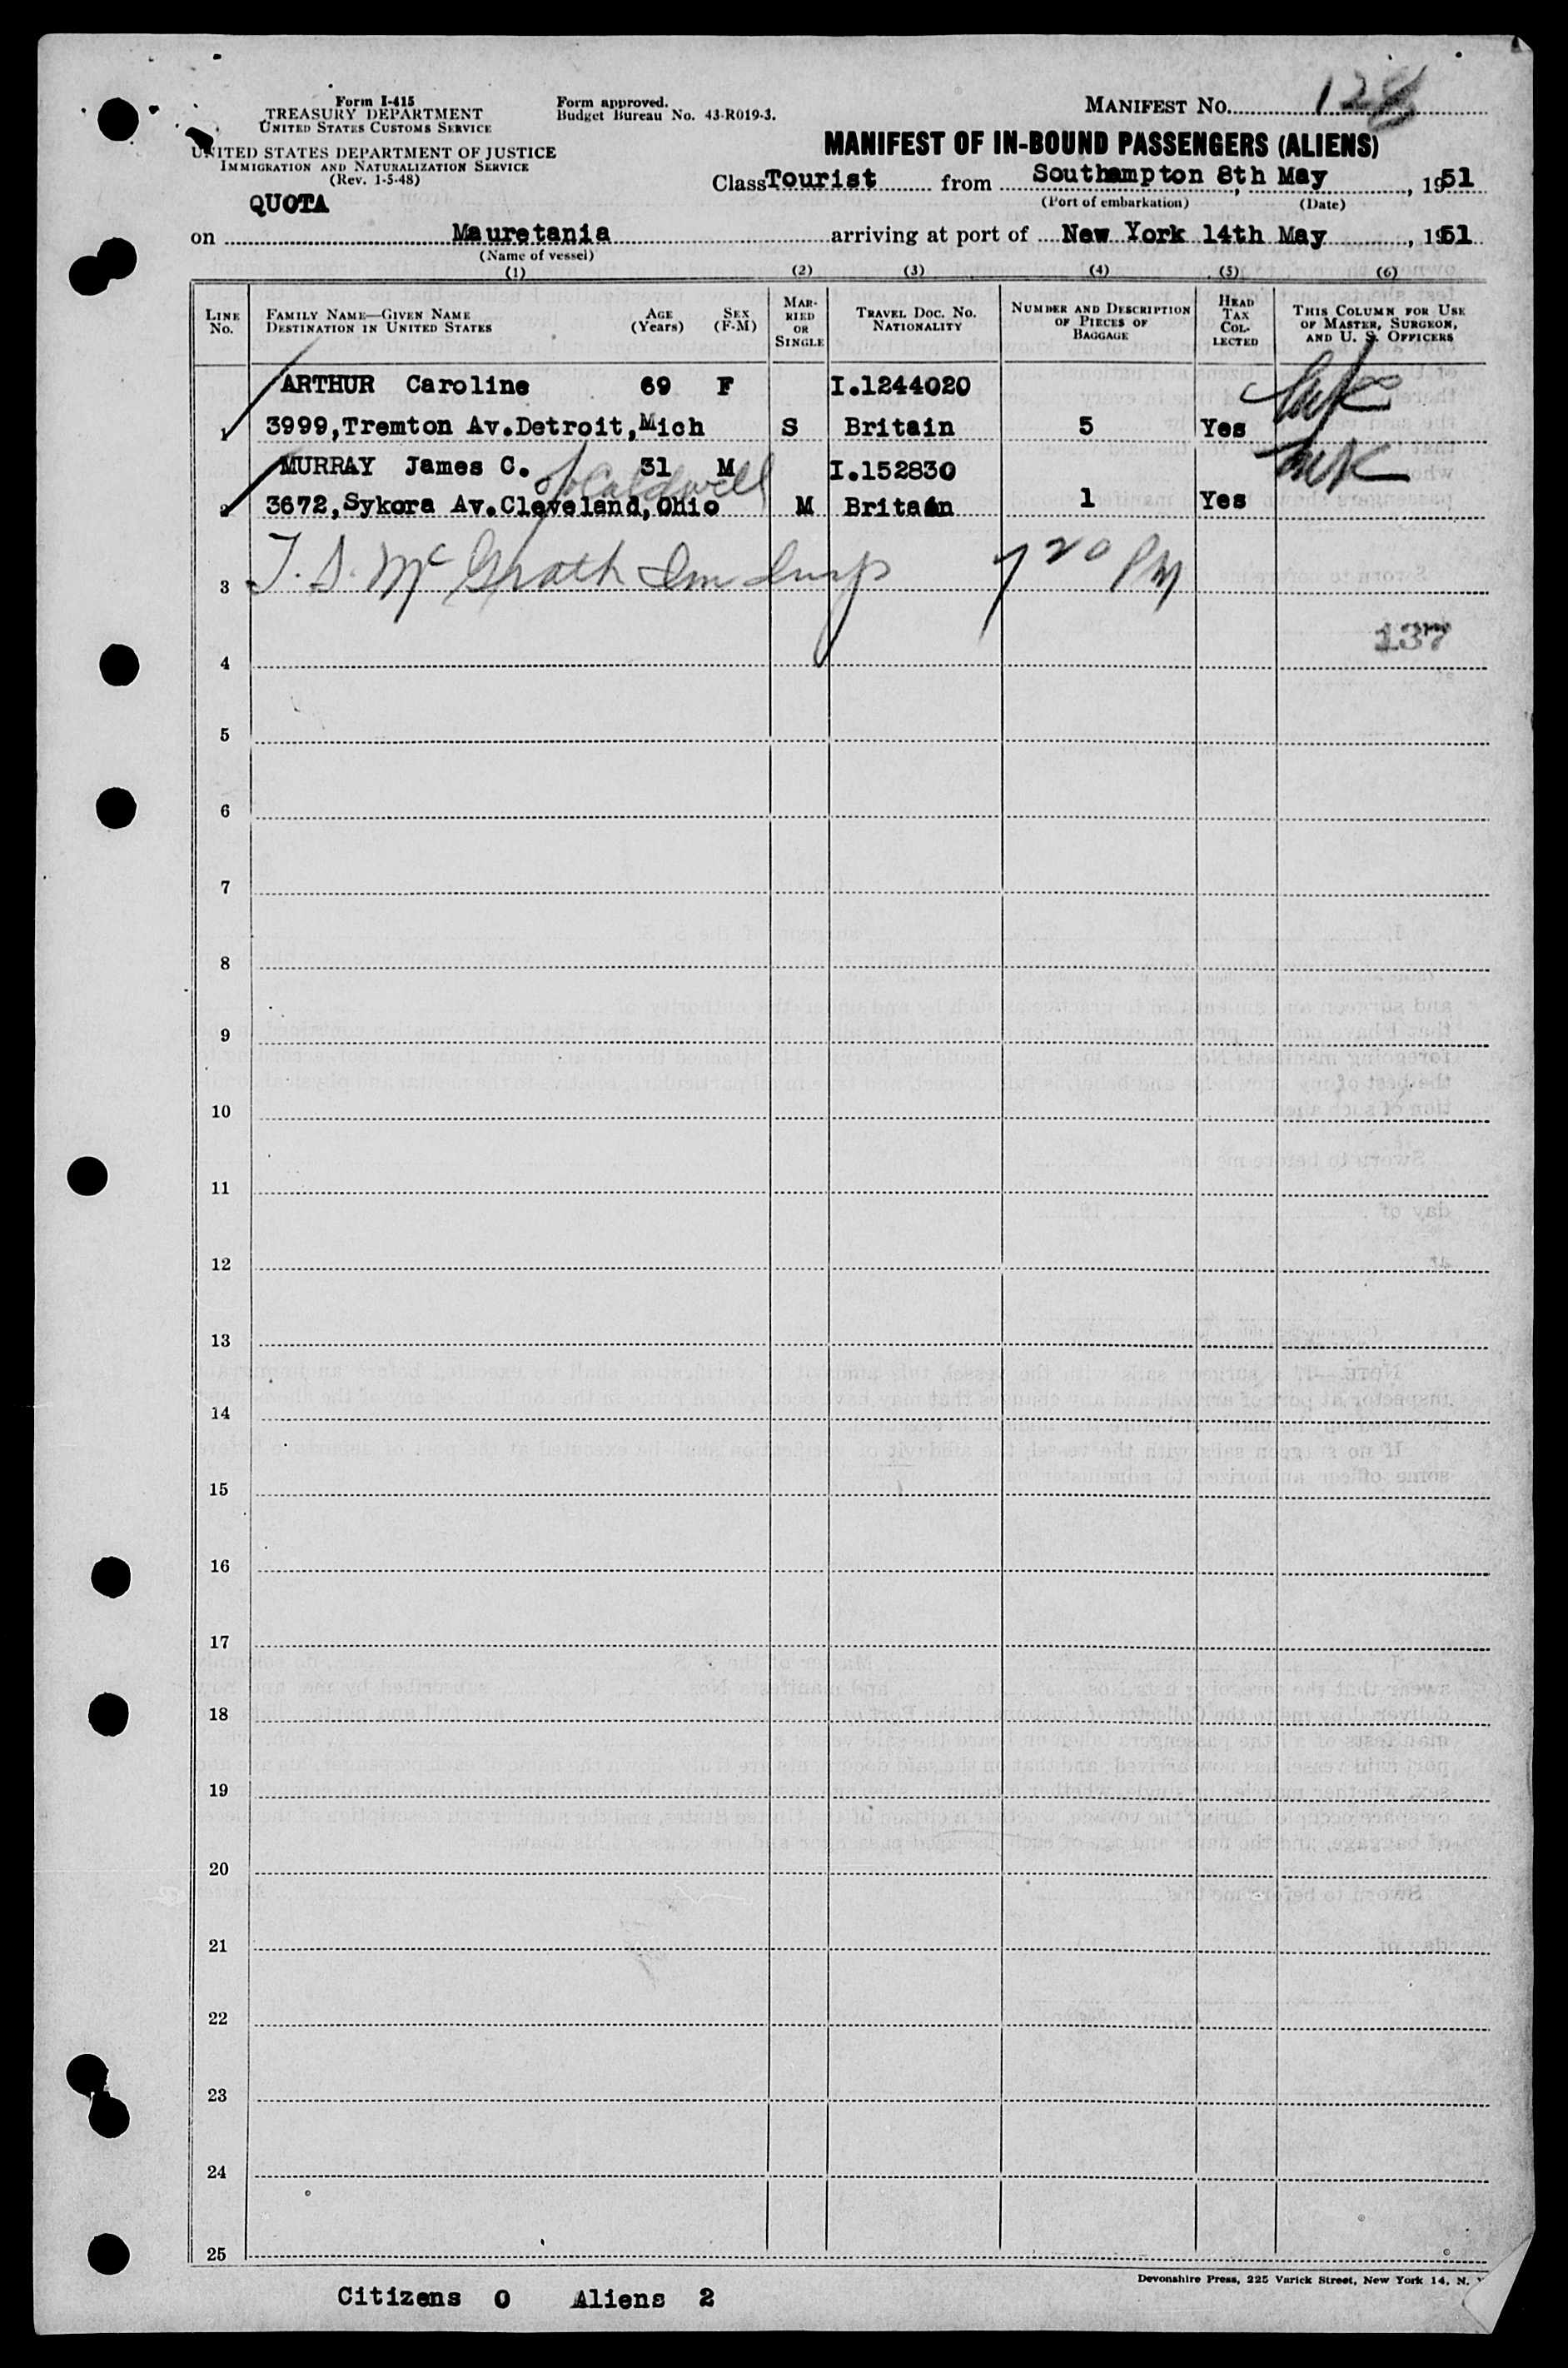 Form I-415
TREASURY DEPARTMENT
UNITED STATES CUSTOMS SERVICE
UNITED STATES DEPARTMENT OF JUSTICE
IMMIGRATION AND NATURALIZATION SERVICE
(Rev. 1-5-48)
Form approved.
Budget Bureau No. 43-R019-3.
MANIFEST No. 128
MANIFEST OF IN-BOUND PASSENGERS (ALIENS)
Class Tourist from Southampton 8th May, 1951
(Port of embarkation) (Date)
QUOTA
on Mauretania arriving at port of New York 14th May, 1951
(Name of vessel)
(1) (2) (3) (4) (5) (6)
LINE No.
FAMILY NAME—GIVEN NAME
DESTINATION IN UNITED STATES
AGE (Years)
SEX (F-M)
MARRIED OR SINGLE
TRAVEL DOC. NO.
NATIONALITY
NUMBER AND DESCRIPTION OF PIECES OF BAGGAGE
HEAD TAX COLLECTED
THIS COLUMN FOR USE OF MASTER, SURGEON, AND U. S. OFFICERS
ARTHUR Caroline 69 F I.1244020
1 3999,Tremton Av.Detroit,Mich S Britain 5 Yes
MURRAY James C. 31 M I.152830
c/o Caldwell
2 3672,Sykora Av.Cleveland,Ohio M Britain 1 Yes
3 T. S. McGrath Imm Insp 7 20 PM
137
4
5
6
7
8
9
10
11
12
13
14
15
16
17
18
19
20
21
22
23
24
25
Devonshire Press, 225 Varick Street, New York 14, N.
Citizens 0 Aliens 2